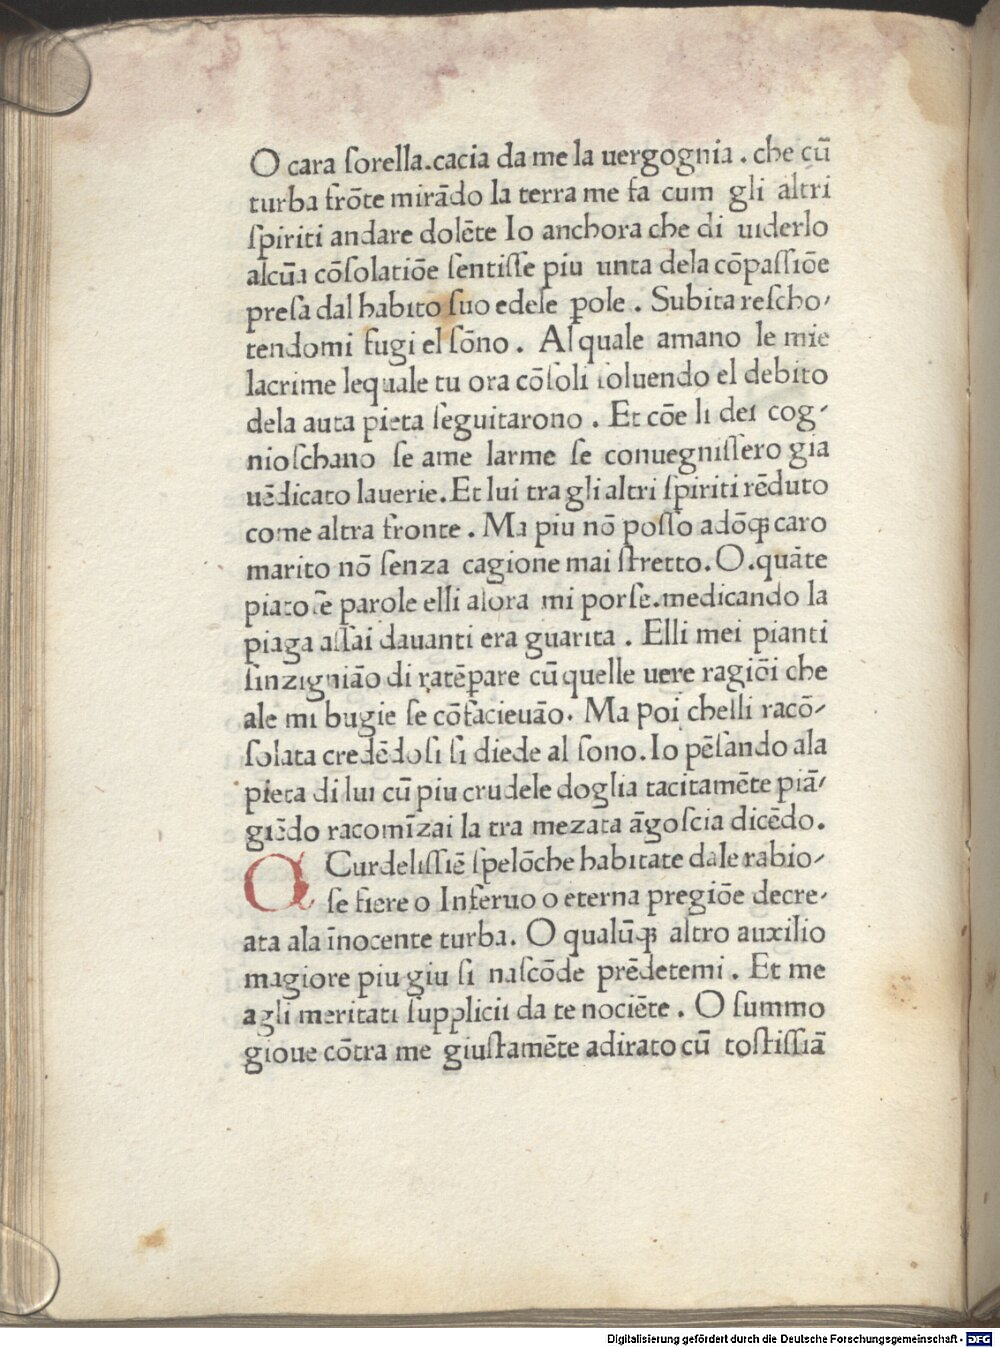 O cara ſorella.cacia da me la uergognia . che cū
turba frōte mirādo la terra me fa cum gli altri
ſpiriti andare dolēte Io anchora che di uiderlo
alcūa cōſolatiōe ſentiſſe piu unta dela cōpaſſiōe
preſa dal habito ſuo edeſe ꝑole . Subita reſcho⸗
tendomi fugi el ſōno . Al quale amano le mie
lacrime lequale tu ora cōſoli ſoluendo el debito
dela auta pieta ſeguitarono . Et cōe li dei cog⸗
nioſchano ſe ame larme ſe conuegniſſero gia
uēdicato lauerie. Et lui tra gli altri ſpiriti rēduto
come altra fronte . Ma piu nō poſſo adōqꝫ caro
marito nō ſenza cagione mai ſtretto. O. quāte
piatoſē parole elli alora mi porſe.medicando la
piaga aſſai dauanti era guarita . Elli mei pianti
ſinzigniāo di ratēpare cū quelle uere ragiōi che
ale mi bugie ſe cōfacieuāo. Ma poi chelli racō⸗
ſolata credēdoſi ſi diede al ſono. Io pēſando ala
pieta di lui cū piu crudele doglia tacitamēte piā⸗
giēdo racomīzai la tra mezata āgoſcia dicēdo.
O Curdeliſſiē ſpelōche habitate dale rabio⸗
ſe fiere o Inferuo o eterna pregiōe decre⸗
ata ala īnocente turba. O qualūqꝫ altro auxilio
magiore piu giu ſi naſcōde prēdetemi . Et me
agli meritati ſupplicii da te nociēte . O ſummo
gioue cōtra me giuſtamēte adirato cū toſtiſſiā
Digitalisierung gefördert durch die Deutsche Forschungsgemeinschaft - DFG